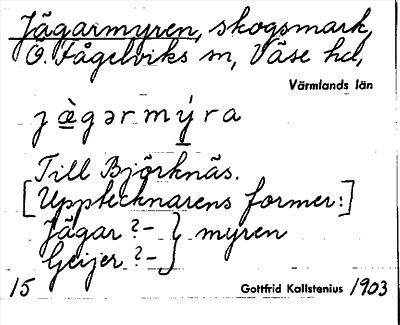 Jägarmyren, skogsmark,
Ö. Fågelviks sn, Väse hd,
Värmlands län
jæ̀gərmýra
Till Björknäs.
[Upptecknarens former:]
Jägar ?- } myren
Geijer ?-
15 Gottfrid Kallstenius 1903